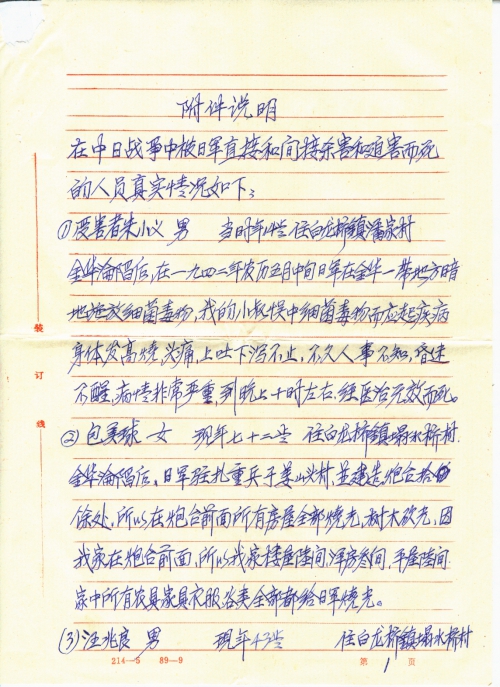 附件说明
在中日战事中被日军直接和间接杀害和迫害而死
的人员真实情况如下：
①受害者朱小义 男 当时年 住白龙桥镇潘家村
金华沦陷后，在一九四二年农历五月中旬日军在金华一带地方暗
地施放细菌毒物，我的小叔惧中细菌毒物而应起疾病
身体发高烧，头痛，上吐下泻不止，不久人事不知，昏迷
不醒，病情非常严重，到晚上十时左右，经医治无效而死。
②包 球 女 现年七十二岁 住白龙桥镇 水桥村
金华沦陷后，日军驻扎重兵于姜山头村，并建造炮台拾
馀处，所以在炮台前面所有房屋全部烧光，树木砍光，因
我家在炮台前面，所以我家楼屋陆间，洋房叁间，平屋陆间
家中所有农具家具衣服谷类全部都给日军烧光。
(3)汪兆良 男 现年43岁 住白龙桥镇 水桥村
装
订
线
214—5 89—9
第 1 页